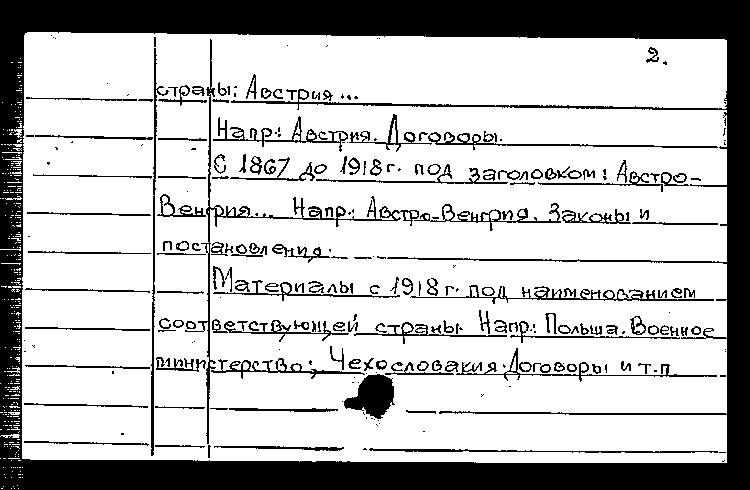 2.
страны: Австрия...
Напр: Австрия. Договоры.
С 1867 до 1918 г. под заголовком: Австро-
Венгрия... Напр: Австро-Венгрия. Законы и
постановления.
Материалы с 1918 г. под наименованием
соответствующей страны. Напр: Польша. Военное
министерство; Чехословакия. Договоры и т.п.